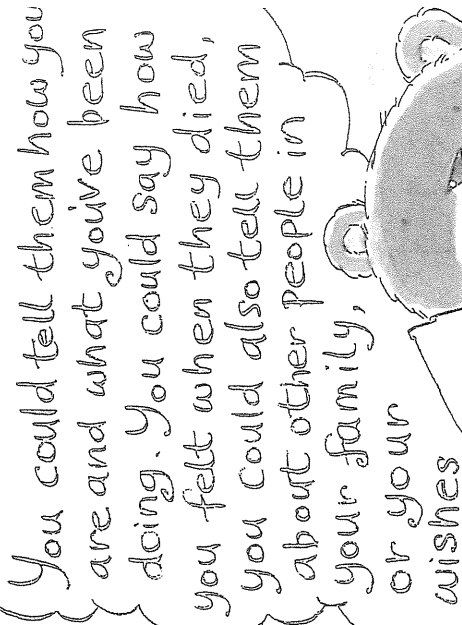 You could tell them how you
are and what you've been
doing. You could say how
you felt when they died,
you could also tell them
about other people in
your family,
or your
wishes